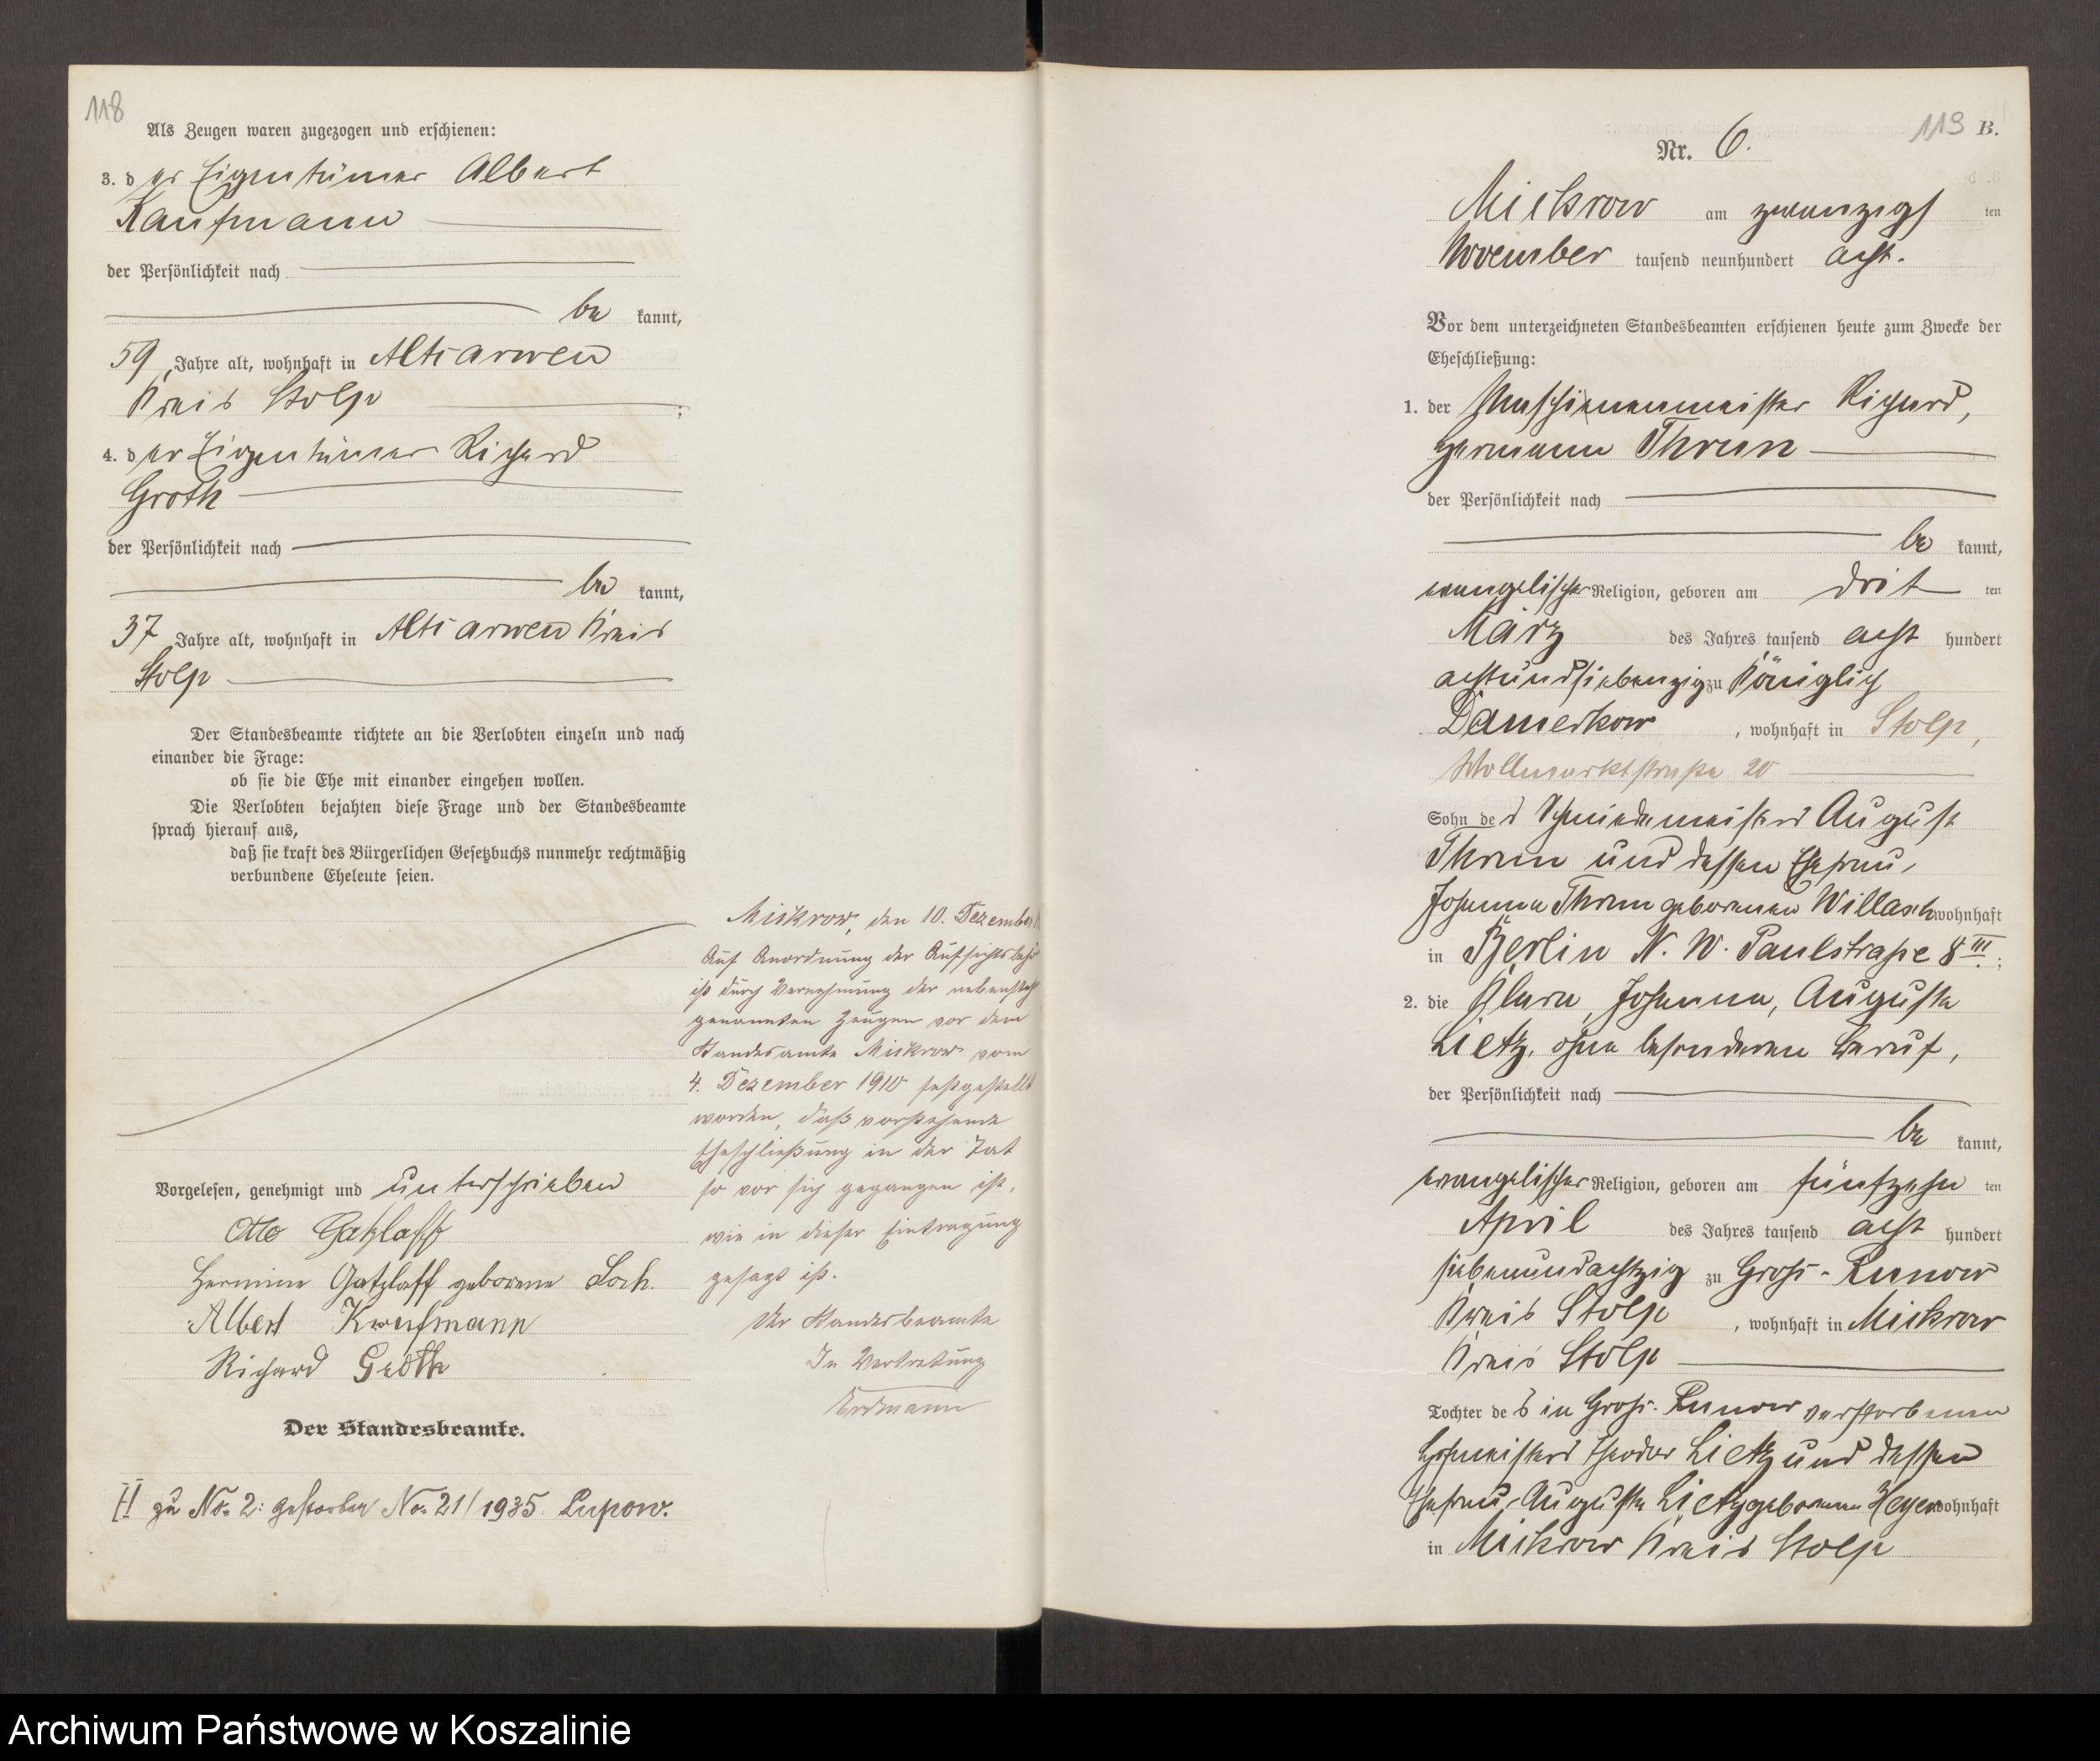 118
Als Zeugen waren zugezogen und erschienen:
3. der Eigentümer Albert
Kaufmann
der Persönlichkeit nach
be kannt,
59 Jahre alt, wohnhaft in Altjarwen
Kreis Stolp ;
4. der Eigentümer Richard
Groth
der Persönlichkeit nach
be kannt,
37 Jahre alt, wohnhaft in Altjarwen Kreis
Stolp
Der Standesbeamte richtete an die Verlobten einzeln und nach
einander die Frage:
ob sie die Ehe mit einander eingehen wollen.
Die Verlobten bejahten diese Frage und der Standesbeamte
sprach hierauf aus,
daß sie kraft des Bürgerlichen Gesetzbuchs nunmehr rechtmäßig
verbundene Eheleute seien.
Vorgelesen, genehmigt und unterschrieben
Otto Gatzlaff
Hermine Gatzlaff geborene Loch.
Albert Kaufmann
Richard Groth
Der Standesbeamte.
H zu No. 2: gestorben No. 21/1935 Lupow.
Mickrow, den 10. Dezember
Auf Anordnung der Aufsichtsbehö
ist durch Vernehmung der nebensteh
genannten Zeugen vor dem
Standesamte Mickrow vom
4. Dezember 1910 festgestellt
worden, daß vorstehende
Eheschließung in der Tat
so vor sich gegangen ist,
wie in dieser Eintragung
gesagt ist.
Der Standesbeamte
In Vertretung
Erdmann
119 B.
Nr. 6.
Mickrow am zwanzigsten
November tausend neunhundert acht.
Vor dem unterzeichneten Standesbeamten erschienen heute zum Zwecke der
Eheschließung:
1. der Maschinenmeister Richard,
Hermann Thrun
der Persönlichkeit nach
be kannt,
evangelischer Religion, geboren am dritten
März des Jahres tausend acht hundert
achtundsiebenzig zu Königlich
Damerkow, wohnhaft in Stolp,
Wollmarktstraße 20
Sohn des Schmiedemeisters August
Thrun und dessen Ehefrau,
Johanna Thrun geborenen Willasch wohnhaft
in Berlin N. W. Paulstraße 8 III.;
2. die Clara, Johanna, Auguste
Lietz, ohne besonderen Beruf,
der Persönlichkeit nach
be kannt,
evangelischer Religion, geboren am fünfzehnten
April des Jahres tausend acht hundert
siebenundachtzig zu Groß-Runow
Kreis Stolp, wohnhaft in Mickrow
Kreis Stolp
Tochter des in Groß-Runow verstorbenen
Hofmeisters Theodor Lietz und dessen
Ehefrau, Auguste Lietz geborenen wohnhaft
in Mickrow Kreis Stolp
Archiwum Państwowe w Koszalinie